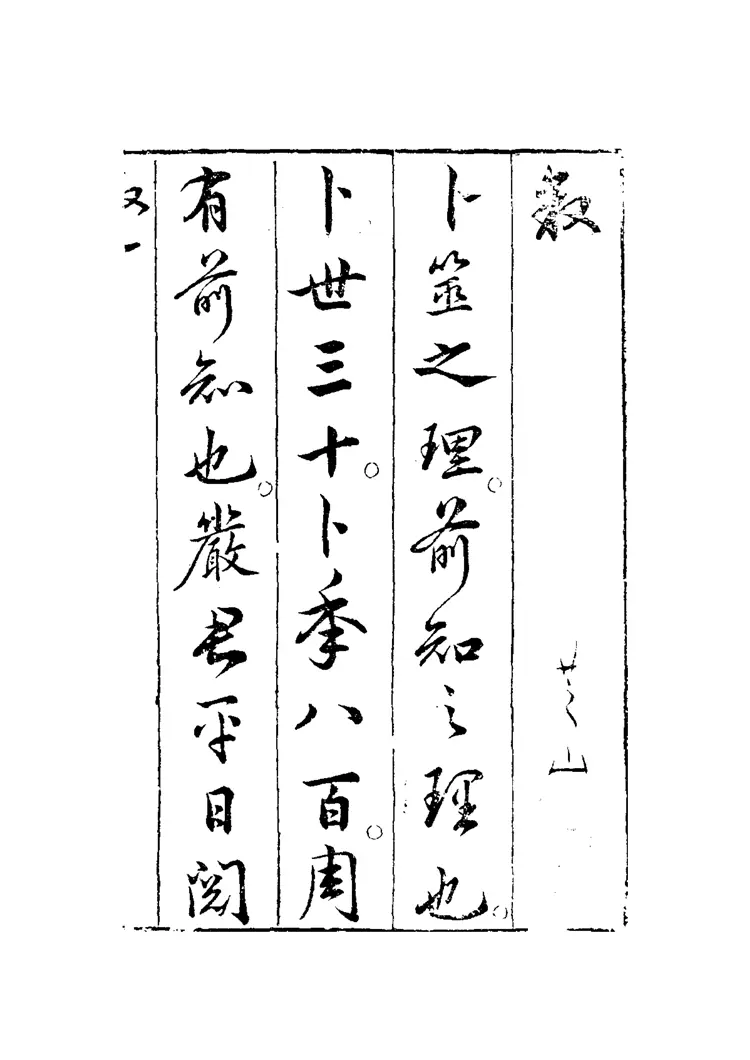 叙
芝山
卜筮之理。前知之理也。
卜世三十。卜秊八百。周
有前知也。嚴君平日閱